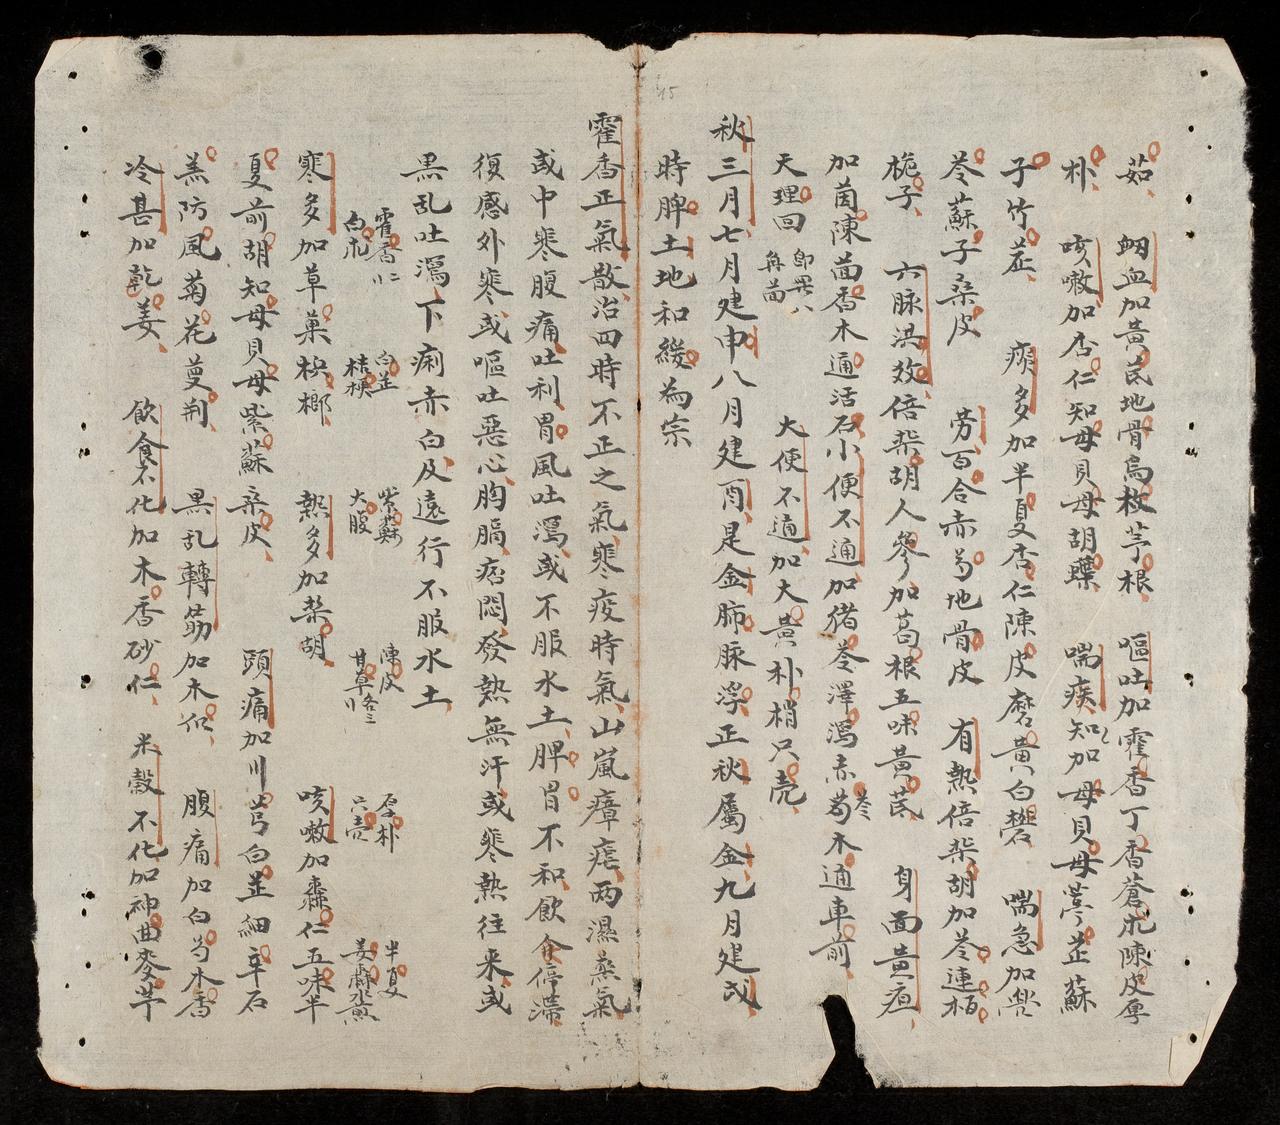 茹 衂血加黃芪地骨烏枚芋根 嘔吐加霍香丁香蒼朮陳皮厚
朴 咳嗽加杏仁知母貝母胡蝶 喘痰知加母貝母葶芷蘇
子竹茊 痰多加半夏杏仁陳皮磨黃白礬 喘急加
芩蘇子桑皮 劳百合赤芍地骨皮 有熱倍柴胡加芩連栢
梔子 六脉洪效倍柴胡人參加葛根五味黃芪 身面黃疸
加茵陳茴香木通活石小便不通加猪苓澤瀉赤芍苓木通車前
天理回 大便不通加大黃朴梢只壳
秋三月七月建申八月建酉是金肺脉浮正秋屬金九月建戌
時脾土地和緩為宗
霍香正氣散治四時不正之氣寒疫時氣山嵐瘴瘧两濕蒸氣
或中寒腹痛吐利胃風吐瀉或不服水土脾胃不和飲食停滯
復感外寒或嘔吐惡心胸膈痞悶發熱無汗或寒熱往来或
黒乱吐瀉下痢赤白及遠行不服水土
霍香仁 白芷 紫蘇 陳皮 厚朴 半夏
白朮 桔梗 大腹 甘草各三 六壳 姜水煎
寒多加草菓梹榔 熱多加柴胡 咳嗽加杏仁五味半
夏前胡知母貝母紫蘇桑皮 頭痛加川芎白芷細辛石
羔防風菊花蔓荆 黒乱轉筋加木瓜 腹痛加白芍木香
冷甚加乾姜 飲食不化加木香砂仁 米穀不化加神曲麥芽